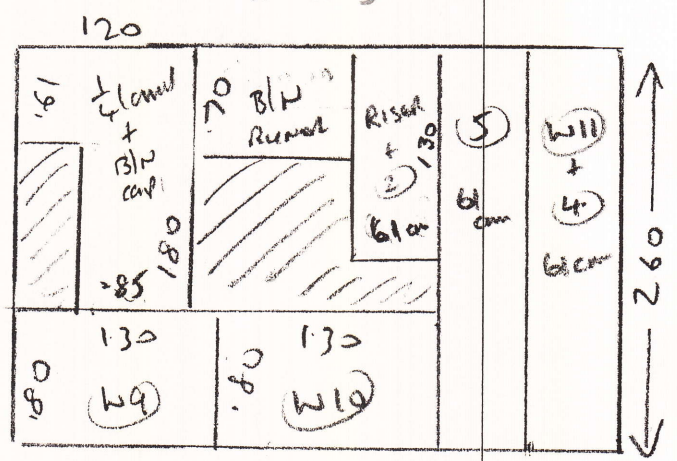 120
.61
1/4 land
+
B/N
cap
180
.85
.70
B/N
Runner
Riser
+
2
61cm
130
5
61
cm
W11
+
4
61cm
260
1.30
.80
W9
1.30
.80
W10